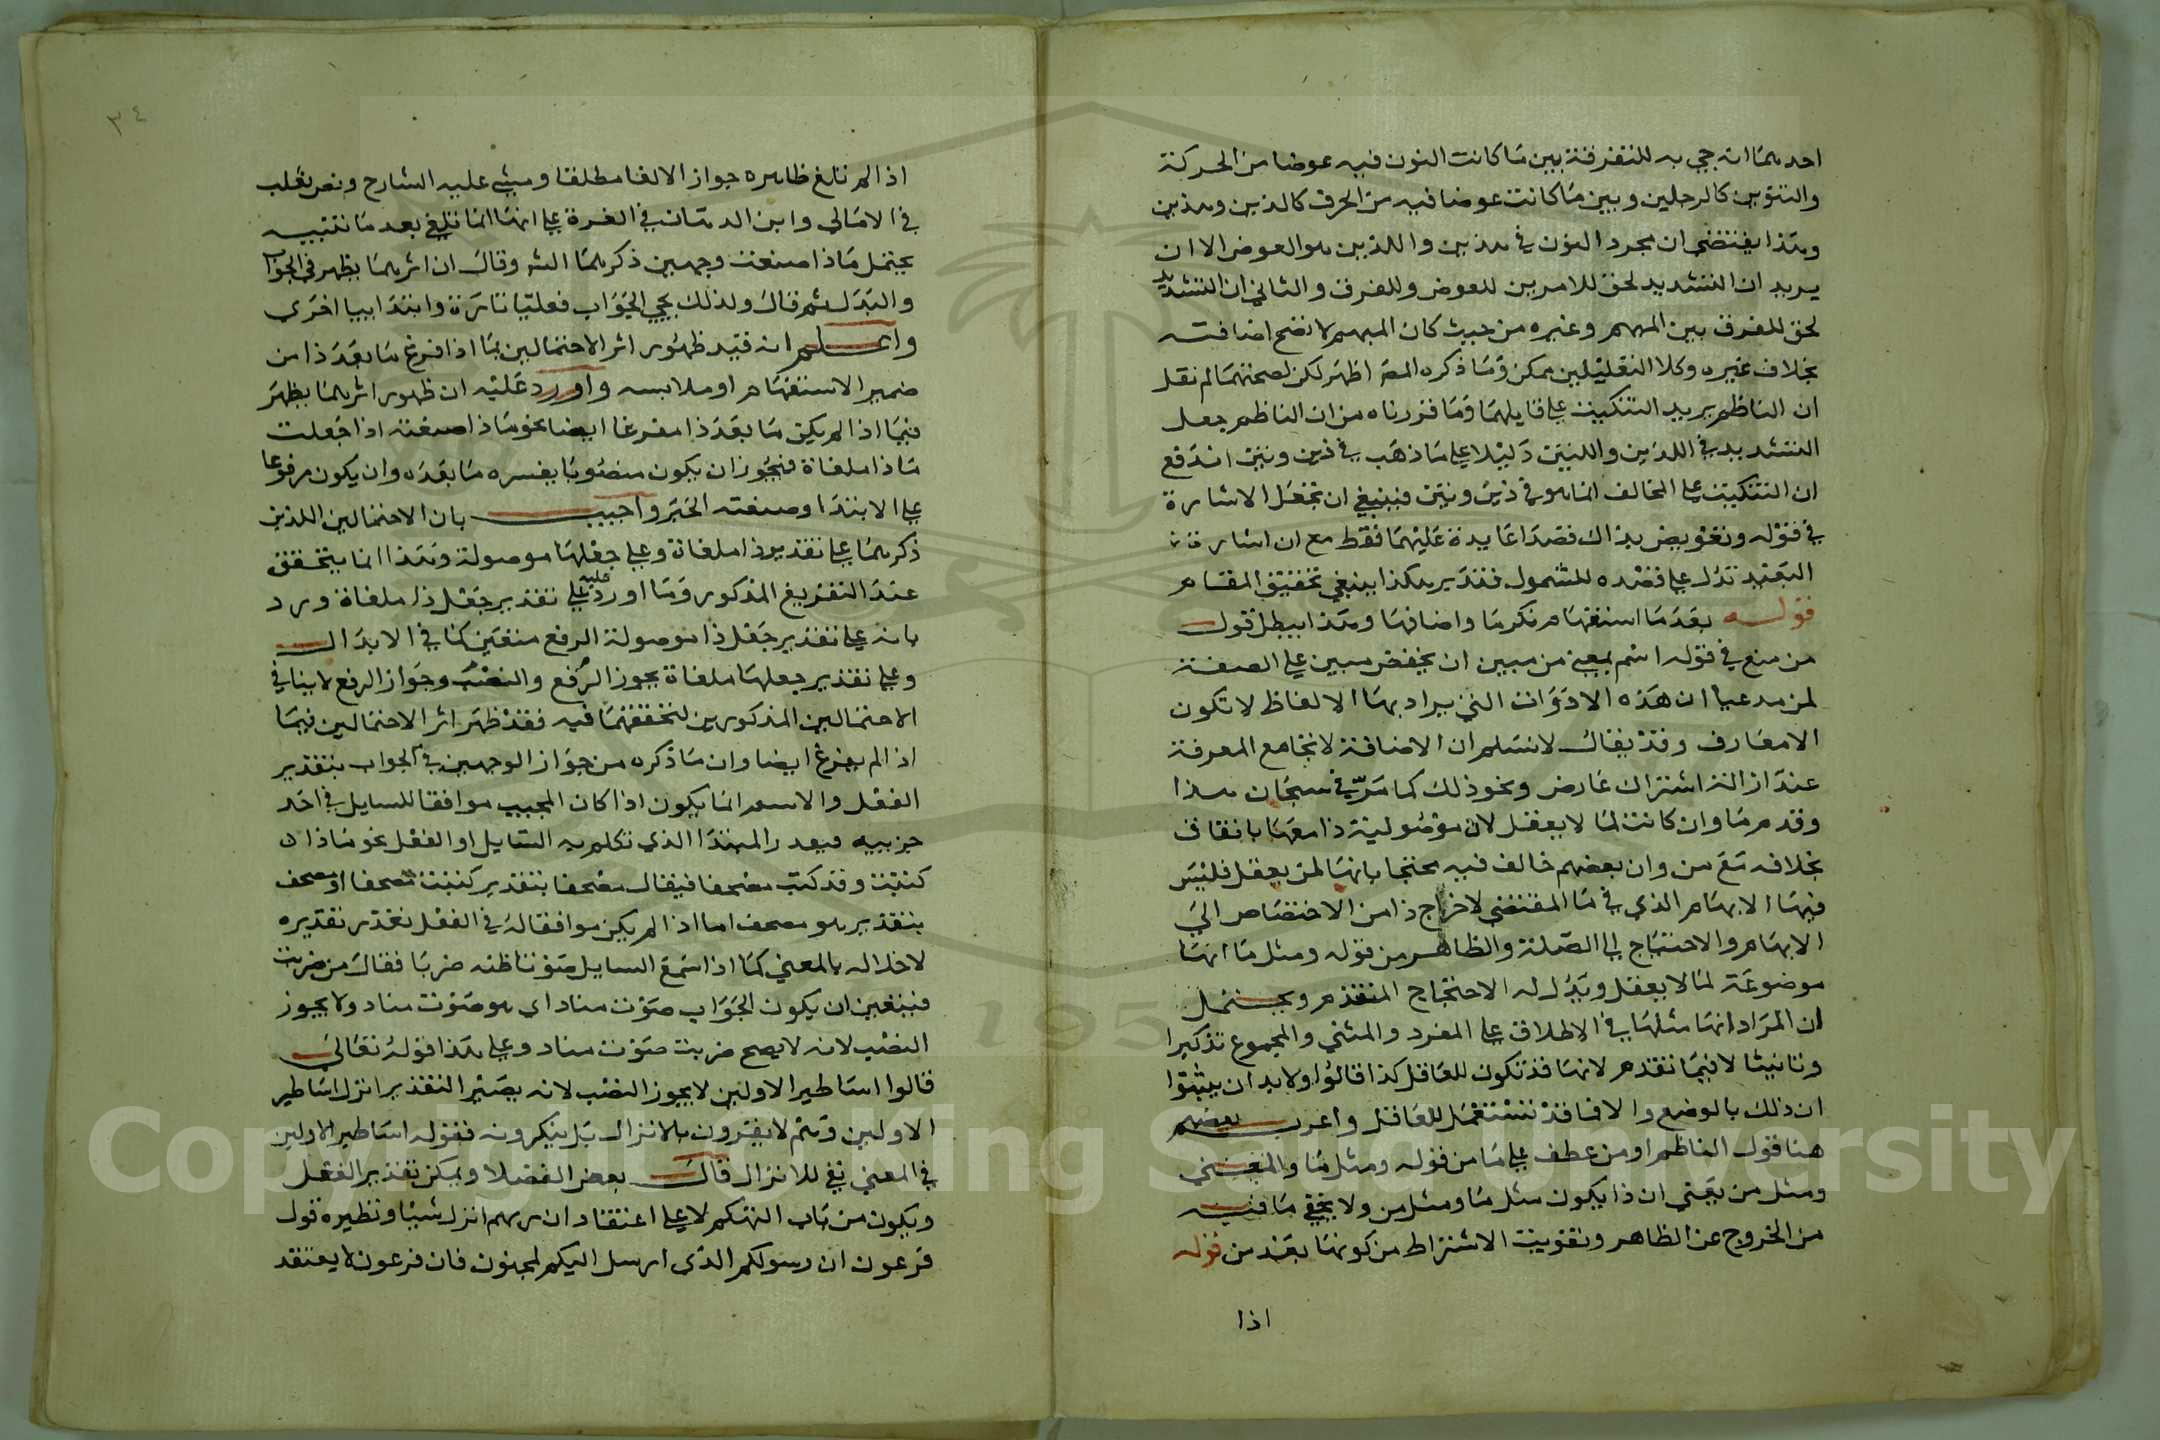 احدهما انه جي به للتفرقة بين ما كانت النون فيه عوضا من الحركة
والتنوين كالرجلين وبين ما كانت عوضا فيه من الحرف كالذين وهذين
وهذا يقتضي ان مجرد النون في هذين واللذين هو العوض الا ان
يريد ان التشديد لحق للامرين للعوض وللفرق والثاني ان التشديد
لحق للفرق بين المبهم وغيره من حيث كان المبهم لا تصح اضافته
بخلاف غيره وكلا التعليلين ممكن وما ذكره المص اظهر لكن لصحتهما لم نقل
ان الناظم يريد التنكيت على قايلهما وما قررناه من ان الناظم جعل
التشديد في اللذين واللتين دليلا على ما ذهب في ذين وتين اندفع
ان التنكيت على المخالف انما هو في ذين وتين فينبغي ان تجعل الاشارة
في قوله وتعويض بذاك قصدا عايدة عليهما فقط مع ان اشارة
البعيد تدل على قصده للشمول فتدبر هكذا ينبغي تحقيق المقام
قوله بعد ما استفهام نكرما واضافها وهذا يبطل قول
من منع في قوله اسم بمعنى من مبين ان يخفض مبين على الصفة
لمن مدعيا ان هذه الادوات التي يراد بها الالفاظ لا تكون
الا معارف وقد يقال لا نسلم ان الاضافة لا تجامع المعرفة
عند ازالة اشتراك عارض ونحو ذلك كما مر في سبحان هذا
وقدم ما وان كانت لما لا يعقل لان موصولية ذا معها باتفاق
بخلافه مع من وان بعضهم خالف فيه محتجا بانها لمن يعقل فليس
فيها الابهام الذي في ما المقتضي لاخراج ذا من الاختصاص الي
الابهام والاحتياج الى الصلة والظاهر من قوله ومثل ما انها
موضوعة لما لا يعقل ويدل له الاحتجاج المتقدم ويحتمل
ان المراد انها مثلها في الاطلاق على المفرد والمثني والمجموع تذكيرا
وتانيثا لا فيما تقدم لانها قد تكون للعاقل كذا قالوا ولا بد ان يثبتوا
ان ذلك بالوضع والا فما قد تستعمل للعاقل واعرب بعضهم
هنا قول الناظم او من عطف على ما من قوله ومثل ما والمعني
ومثل من يعني ان ذا يكون مثل ما ومثل من ولا يخفي ما فيه
من الخروج عن الظاهر وتفويت الاشتراط من كونها بعد من قوله
اذا
٣٤
اذا لم تلغ ظاهره جواز الالغا مطلقا ومشي عليه الشارح ونص ثعلب
في الامالي وابن الدهان في الغرة على انها انما تلغي بعد ما تنبيه
يحتمل ماذا صنعت وجهين ذكرهما الش وقال ان اثرهما يظهر في الجواب
والبدل ثم قال ولذلك يجي الجواب فعليا تارة وابتدابيا اخري
واعلم انه قيد ظهور اثر الاحتمالين بما اذا فرغ ما بعد ذا من
ضمير الاستفهام او ملابسه واورد عليه ان ظهور اثرهما يظهر
فيما اذا لم يكن ما بعد ذا مفرغا ايضا نحو ماذا صنعته اذا جعلت
ماذا ملغاة فيجوز ان يكون منصوبا يفسره ما بعده وان يكون مرفوعا
على الابتدا وصنعته الخبر واجيب بان الاحتمالين اللذين
ذكرهما على تقدير ذا ملغاة وعلى جعلها موصولة وهذا انما يتحقق
عند التفريغ المذكور وما اورد عليه على تقدير جعل ذا ملغاة ورد
بانه على تقدير جعل ذا موصولة الرفع متعين كما في الابدال
وعلى تقدير جعلها ملغاة يجوز الرفع والنصب وجواز الرفع لا ينافي
الاحتمالين المذكورين لتحققهما فيه فقد ظهر اثر الاحتمالين فيما
اذا لم يفرغ ايضا وان ما ذكره من جواز الوجهين في الجواب بتقدير
الفعل والاسم انما يكون اذا كان المجيب موافقا للسايل في احد
جزييه فيعد المبتدا الذي تكلم به السايل او الفعل نحو ماذا
كتبت وقد كتب مصحفا فيقال مصحفا بتقدير كتبت مصحفا او مصحف
بتقدير هو مصحف اما اذا لم يكن موافقا له في الفعل تعذر تقديره
لاخلاله بالمعني كما اذا سمع السايل صوتا ظنه ضربا فقال من ضربت
فيتعين ان يكون الجواب صوت مناد اي هو صوت مناد ولا يجوز
النصب لانه لا يصح ضربت صوت مناد وعلى هذا قوله تعالي
قالوا اساطير الاولين لا يجوز النصب لانه يصير التقدير انزل اساطير
الاولين وهم لا يقرون بالانزال بل ينكرونه فقوله اساطير الاولين
في المعني نفي للانزال قال بعض الفضلا ويمكن تقدير الفعل
ويكون من باب التهكم لا على اعتقاد ان ربهم انزل شيا ونظيره قول
فرعون ان رسولكم الذي ارسل اليكم لمجنون فان فرعون لا يعتقد
Copyright © King Saud University
195